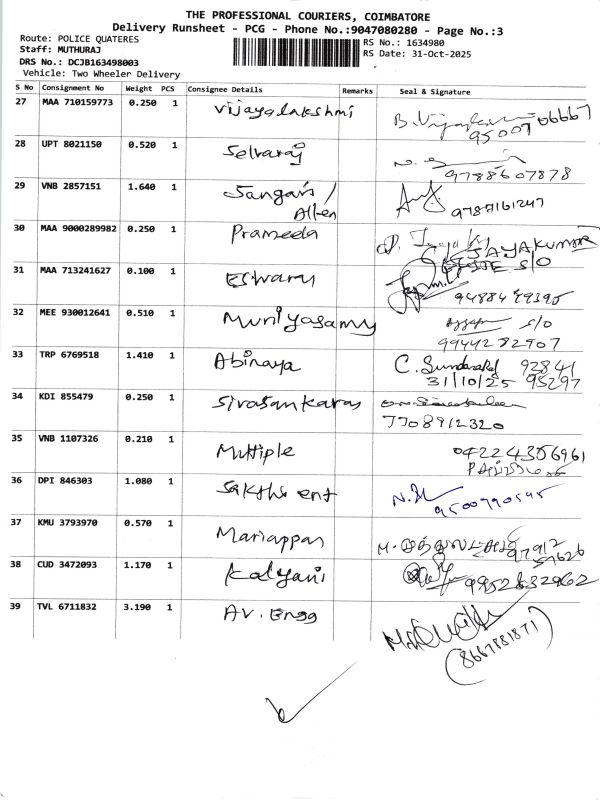 THE PROFESSIONAL COURIERS, COIMBATORE
Delivery Runsheet - PCG - Phone No.:9047080280 - Page No.:3
Route: POLICE QUATERES
RS No.: 1634980
Staff: MUTHURAJ
RS Date: 31-Oct-2025
DRS No.: DCJB163498003
Vehicle: Two Wheeler Delivery
S No Consignment No Weight PCS Consignee Details Remarks Seal & Signature
27 MAA 710159773 0.250 1 Vijayalakshmi
28 UPT 8021150 0.520 1 Selvaraj
9788607878
29 VNB 2857151 1.640 1 Sangavi /
Allen
9787161247
30 MAA 9000289982 0.250 1 Prameela
JAYAKUMAR
S/O
31 MAA 713241627 0.100 1 Eswary
32 MEE 930012641 0.510 1 Muniyasamy S/O
9944282907
33 TRP 6769518 1.410 1 Abinaya C. 92841
31/10/25 95297
34 KDI 855479 0.250 1 Sivasankaran
7708912320
35 VNB 1107326 0.210 1 Multiple 04224356961
36 DPI 846303 1.080 1 Sakthi ent
37 KMU 3793970 0.570 1 Mariappan 97912
38 CUD 3472093 1.170 1 Kalyani 9952632962
39 TVL 6711832 3.190 1 AV. Engg